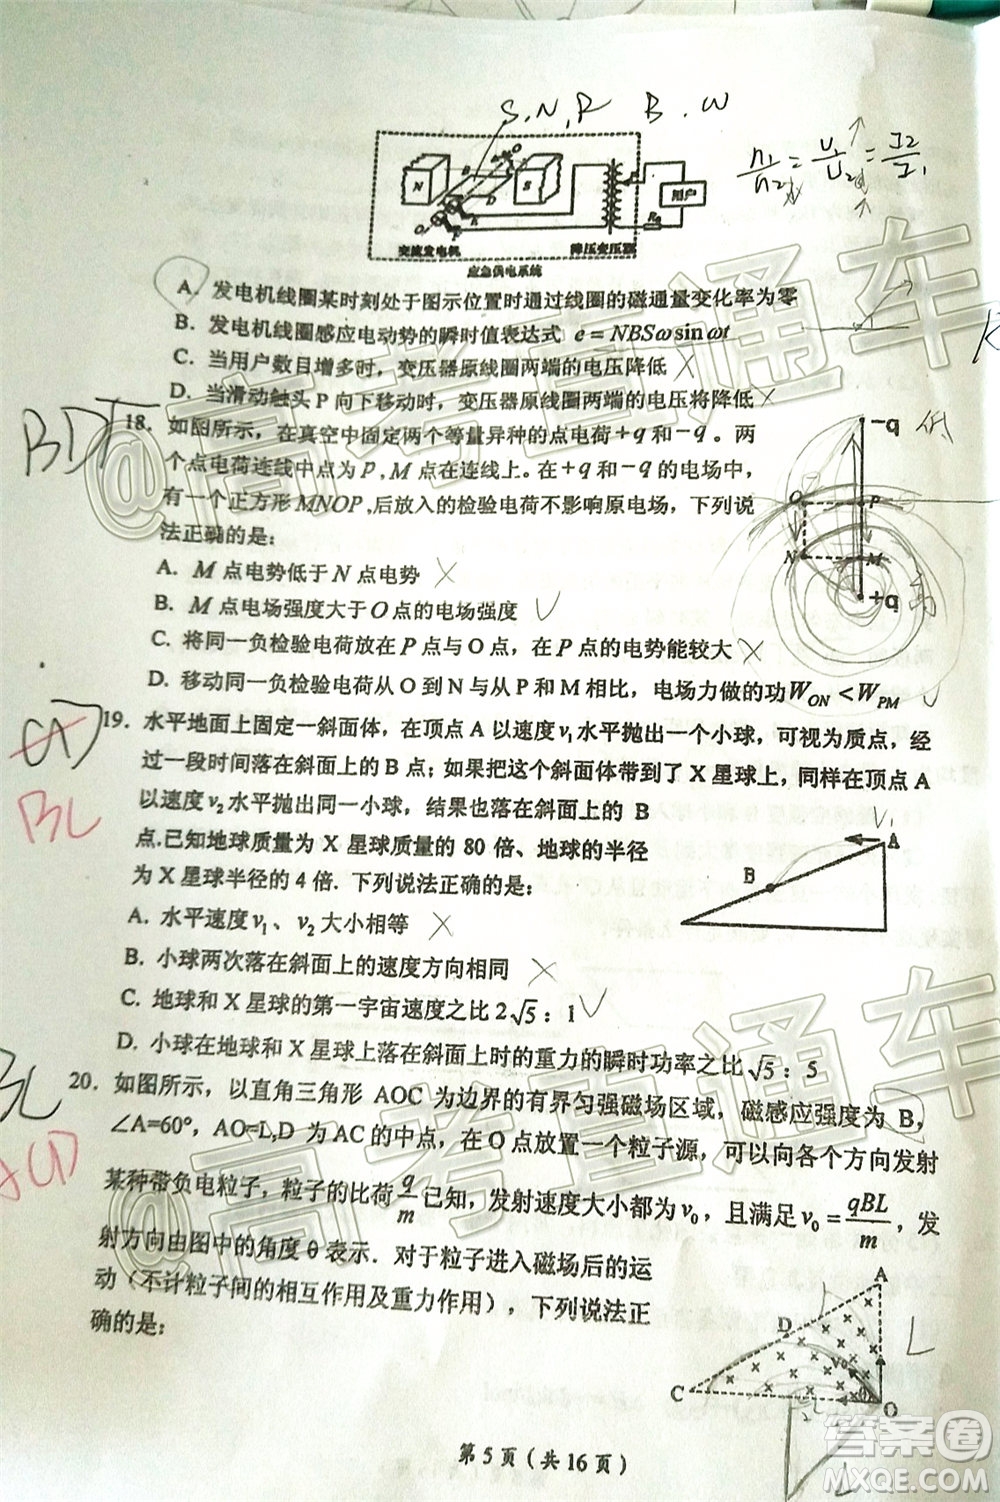 S、N、R B、ω
n₁/n₂ = U₁/U₂ = I₂/I₁
N S 用户
R₀
交流发电机 降压变压器
应急供电系统
A. 发电机线圈某时刻处于图示位置时通过线圈的磁通量变化率为零
B. 发电机线圈感应电动势的瞬时值表达式 e=NBSωsinωt
C. 当用户数目增多时，变压器原线圈两端的电压降低
D. 当滑动触头 P 向下移动时，变压器原线圈两端的电压将降低
BD
18. 如图所示，在真空中固定两个等量异种的点电荷+q 和－q，两
个点电荷连线中点为 P, M 点在连线上。在＋q 和－q 的电场中，
有一个正方形 MNOP,后放入的检验电荷不影响原电场，下列说
法正确的是:
－q
O P
N M
+q
A. M 点电势低于 N 点电势
B. M 点电场强度大于 O 点的电场强度
C. 将同一负检验电荷放在 P 点与 O 点，在 P 点的电势能较大
D. 移动同一负检验电荷从 O 到 N 与从 P 和 M 相比，电场力做的功 W_ON < W_PM
BC
19. 水平地面上固定一斜面体，在顶点 A 以速度 v₁ 水平抛出一个小球，可视为质点，经
过一段时间落在斜面上的 B 点；如果把这个斜面体带到了 X 星球上，同样在顶点 A
以速度 v₂ 水平抛出同一小球，结果也落在斜面上的 B
点.已知地球质量为 X 星球质量的 80 倍、地球的半径
为 X 星球半径的 4 倍. 下列说法正确的是:
V₁
A
B
A. 水平速度 v₁、v₂ 大小相等
B. 小球两次落在斜面上的速度方向相同
C. 地球和 X 星球的第一宇宙速度之比 2√5：1
D. 小球在地球和 X 星球上落在斜面上时的重力的瞬时功率之比 √5：5
BC
ACD
20. 如图所示，以直角三角形 AOC 为边界的有界匀强磁场区域，磁感应强度为 B，
∠A=60°，AO=L,D 为 AC 的中点，在 O 点放置一个粒子源，可以向各个方向发射
某种带负电粒子，粒子的比荷 q/m 已知，发射速度大小都为 v₀，且满足 v₀ = qBL/m，发
射方向由图中的角度 θ 表示．对于粒子进入磁场后的运
动（不计粒子间的相互作用及重力作用），下列说法正
确的是:
A
D L
v₀
C O
第 5 页（共 16 页）
@高考直通车
@高考直通车
答案圈
MXQE.COM